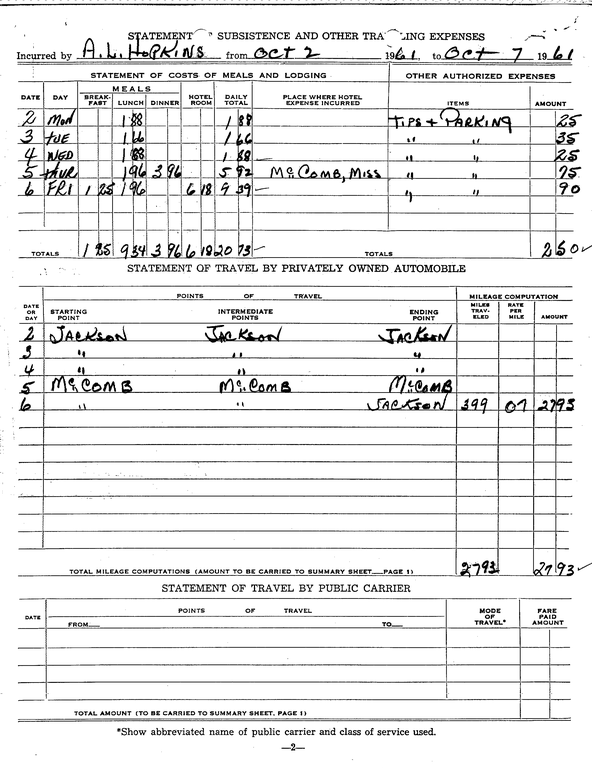 STATEMENT SUBSISTENCE AND OTHER EXPENSES
Incurred by A.L. HOPKINS from OCT 2 1961 to OCT 7 1961
STATEMENT OF COSTS OF MEALS AND LODGING OTHER AUTHORIZED EXPENSES
MEALS
DATE DAY BREAK-FAST LUNCH DINNER HOTEL ROOM DAILY TOTAL PLACE WHERE HOTEL EXPENSE INCURRED ITEMS AMOUNT
2 MON 1 88 1 88 TIPS + PARKING 25
3 TUE 1 66 1 66 " " 35
4 WED 1 88 1 88 " " 25
5 THUR 1 96 3 96 5 92 McCOMB, MISS " " 75
6 FRI 1 25 1 96 6 18 9 39 " " 90
TOTALS 1 25 9 34 3 96 6 18 20 73 TOTALS 2 50
STATEMENT OF TRAVEL BY PRIVATELY OWNED AUTOMOBILE
POINTS OF TRAVEL MILEAGE COMPUTATION
DATE OR DAY STARTING POINT INTERMEDIATE POINTS ENDING POINT MILES TRAV-ELED RATE PER MILE AMOUNT
2 JACKSON JACKSON JACKSON
3 " " "
4 " " "
5 McCOMB McCOMB McCOMB
6 " " JACKSON 399 07 27 93
TOTAL MILEAGE COMPUTATIONS (AMOUNT TO BE CARRIED TO SUMMARY SHEET PAGE 1) 2793 27 93
STATEMENT OF TRAVEL BY PUBLIC CARRIER
DATE POINTS OF TRAVEL MODE OF TRAVEL* FARE PAID AMOUNT
FROM TO
TOTAL AMOUNT (TO BE CARRIED TO SUMMARY SHEET, PAGE 1)
*Show abbreviated name of public carrier and class of service used.
—2—